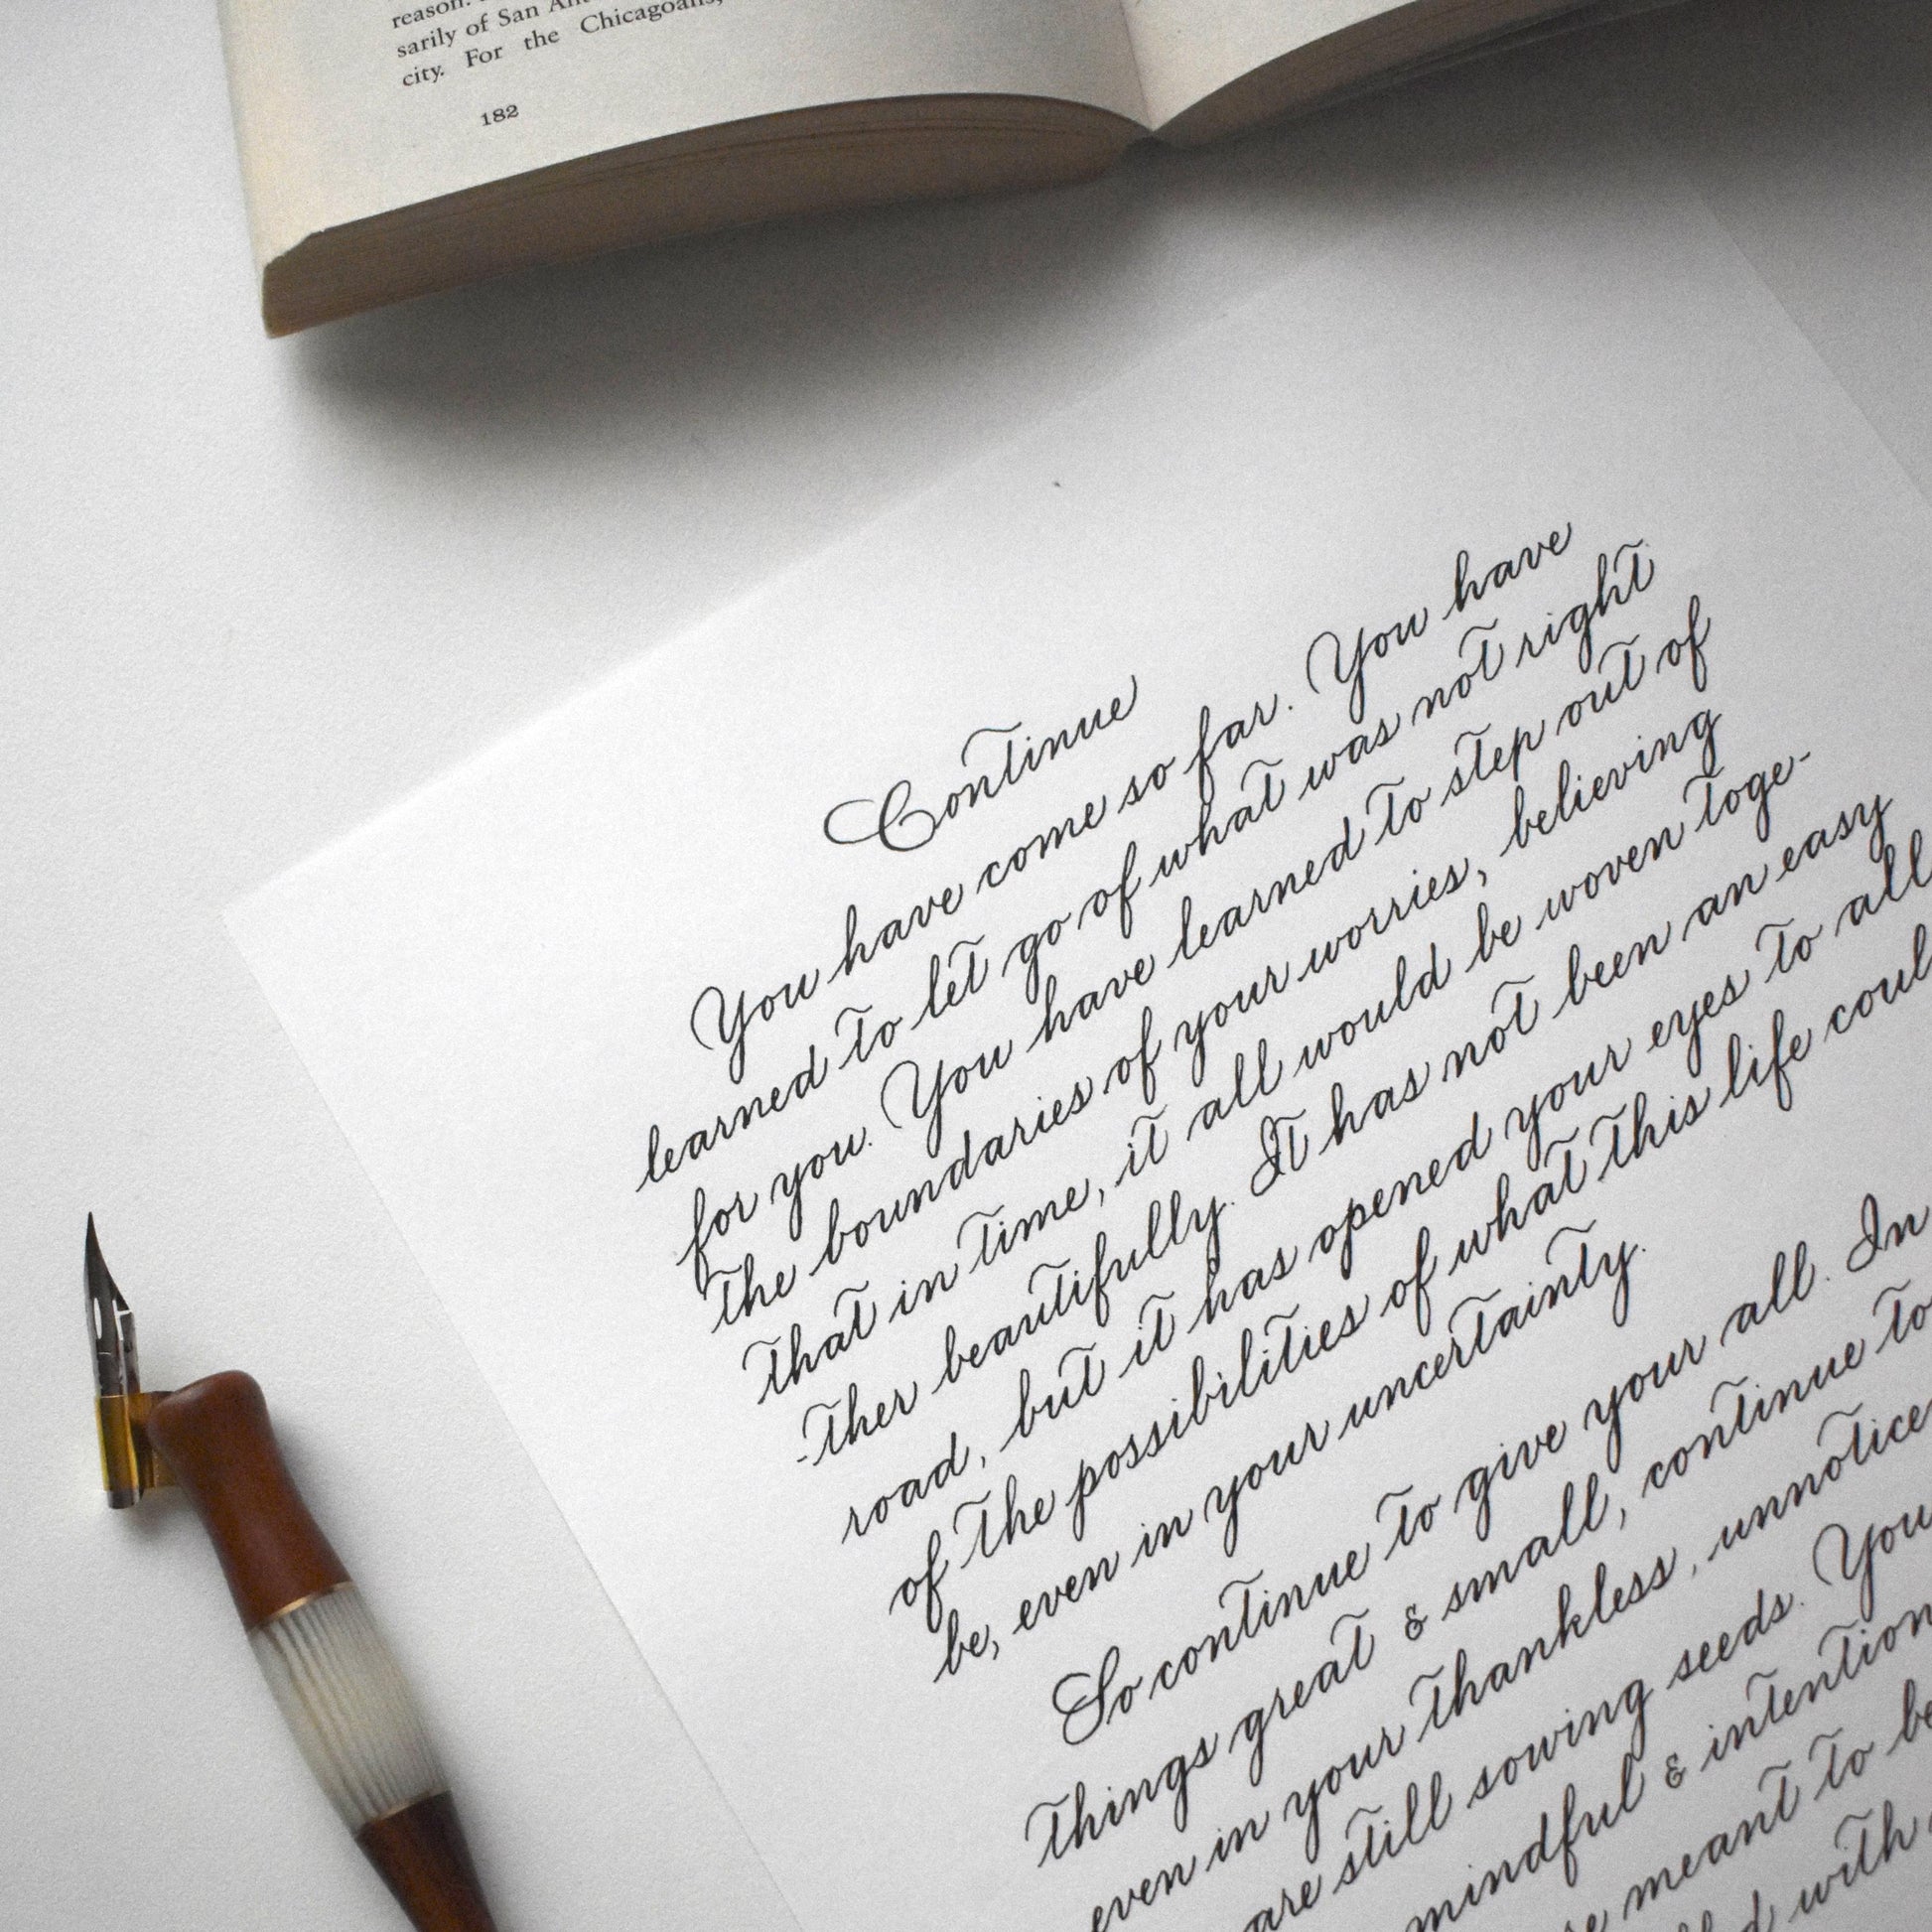 reason.
sarily of San
city. For the Chicagoans,
182
Continue
You have come so far. You have
learned to let go of what was not right
for you. You have learned to step out of
the boundaries of your worries, believing
that in time, it all would be woven toge-
-ther beautifully. It has not been an easy
road, but it has opened your eyes to all
of the possibilities of what this life coul
be, even in your uncertainty.
So continue to give your all. In
things great & small, continue to
even in your thankless, unnotice
are still sowing seeds. You
mindful & intention
meant to be
with